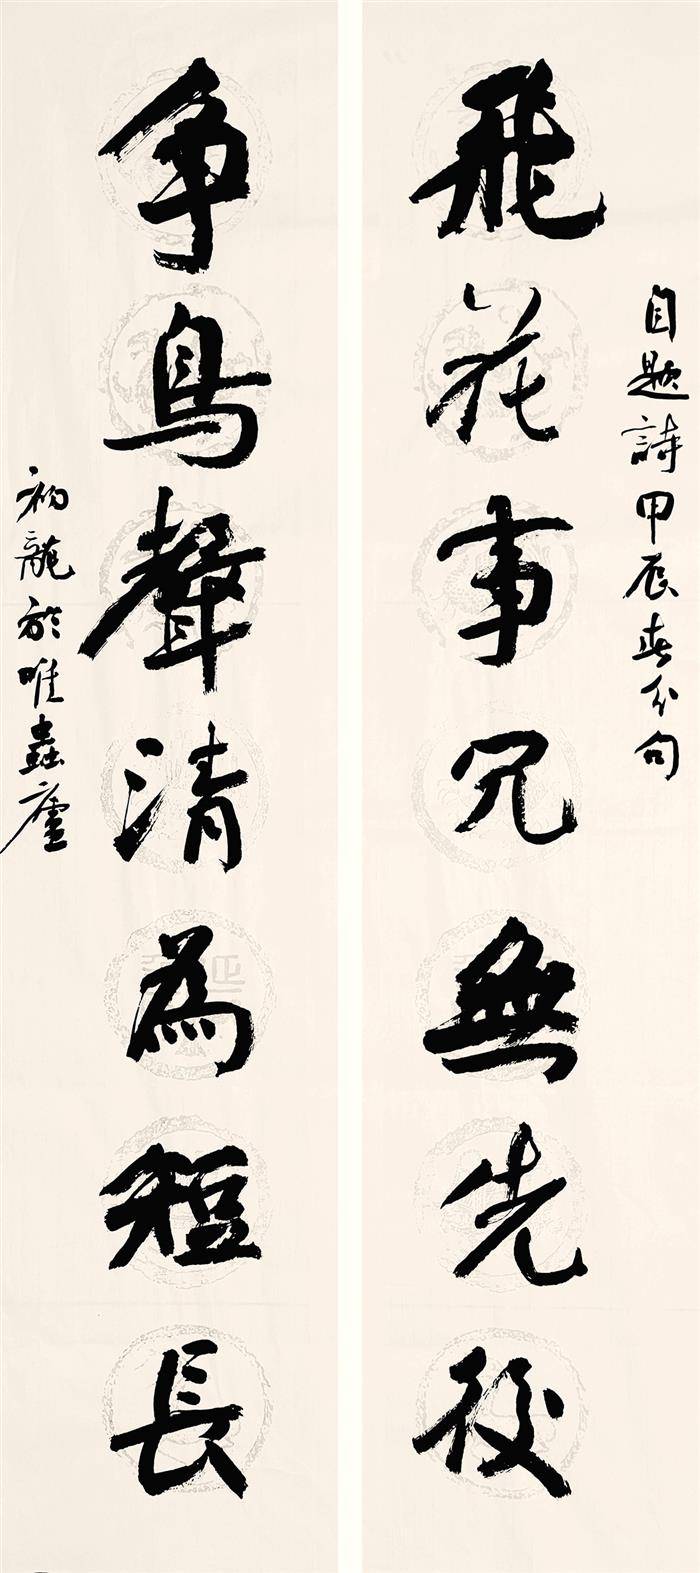 自題詩甲辰春分句
飛花事冗無先後
争鳥聲清為短長
初龍於唯蟲廬